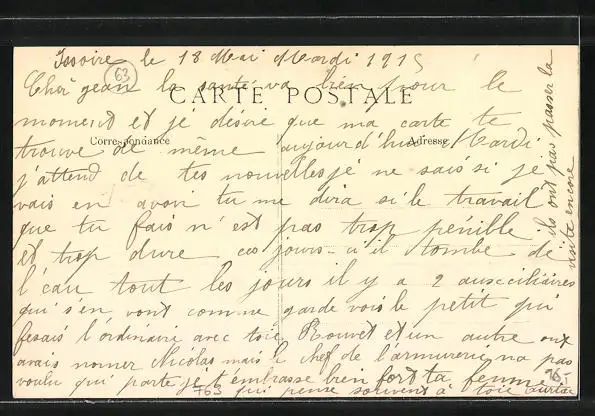 Issoire le 18 Mai Mardi 1915
63
Cher jean la santé va bien pour le
CARTE POSTALE
moment et je désire que ma carte te
Correspondance
Adresse
trouve de même aujourd'hui Mardi
j'attend de tes nouvelles je ne sais si je
vais en avoir tu me dira si le travail
que tu fais n'est pas trop pénible
et trop dure ces jours-ci il tombe de
l'eau tout les jours il y a 2 auxciliaires
qui s'en vont comme garde vois le petit qui
fesais l'ordinaire avec toie Rouvet et un autre ont
avais nomer Nicolas mais le chef de l'armurerie na pas
voulu qui parte je t'embrasse bien fort ta femme
763 qui pense souvent à toie
ils ont pas passer la
visite encore